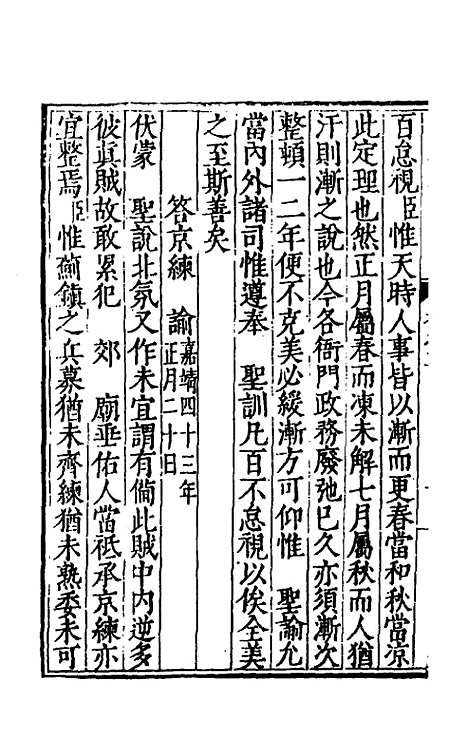 百怠視臣惟天時人事皆以漸而更春當和秋當涼
此定理也然正月屬春而凍未解七月屬秋而人猶
汗則漸之說也今各衙門政務廢弛已久亦須漸次
整頓一二年便不克美必緩漸方可仰惟　聖諭允
當內外諸司惟遵奉　聖訓凡百不怠視以俟全美
之至斯善矣
答京練　諭嘉靖四十三年正月二十日
伏蒙　聖說北氛又作未宜謂有備此賊中內逆多
彼眞賊故敢累犯　郊　廟垂佑人當祗承京練亦
宜整焉臣惟薊鎮之兵募猶未齊練猶未熟委未可